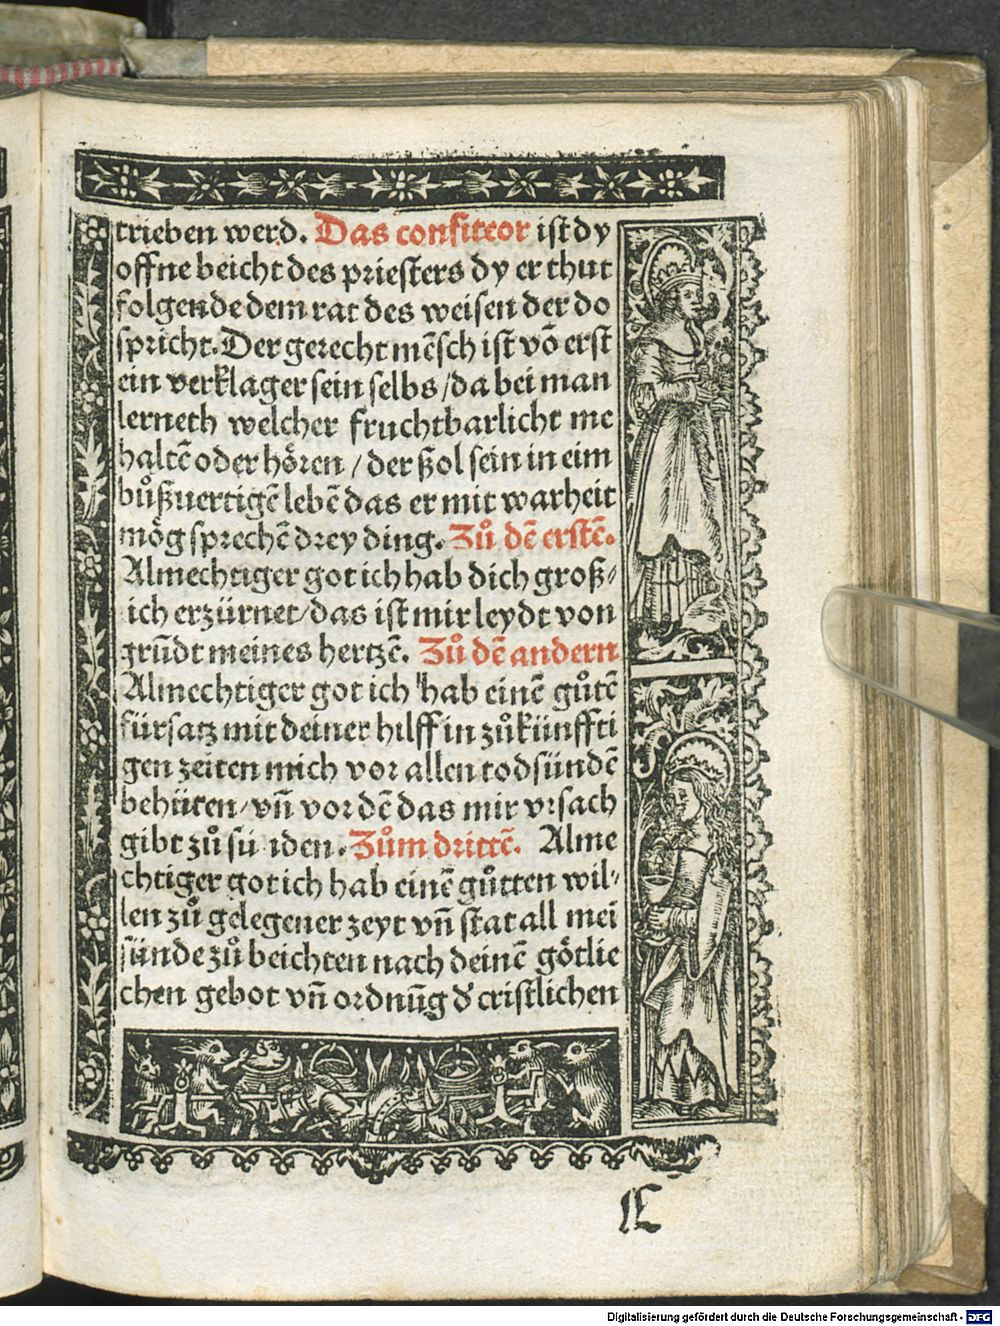 trieben werd. Das confiteor ist dy
offne beicht des priesters dy er thut
folgende dem rat des weisen der do
spricht. Der gerecht mēsch ist vō erst
ein verklager sein selbs / da bei man
lerneth welcher fruchtbarlicht me
haltē oder hören / der ßol sein in eim
bůßuertigē lebē das er mit warheit
mög sprechē drey ding. Zů dē erstē.
Almechtiger got ich hab dich groß⸗
ich erzürnet / das ist mir leydt von
grūdt meines hertzē. Zů dē andern
Almechtiger got ich hab einē gůtē
fürsatz mit deiner hilff in zůkünffti
gen zeiten mich vor allen todsündē
behüten / vn̄ vor dē das mir vrsach
gibt zů sü nden. Zům drittē. Alme
chtiger got ich hab einē gůtten wil⸗
len zů gelegener zeyt vn̄ stat all mei
sünde zů beichten nach deinē götlie
chen gebot vn̄ ordnūg d' cristlichen
Digitalisierung gefördert durch die Deutsche Forschungsgemeinschaft - DFG